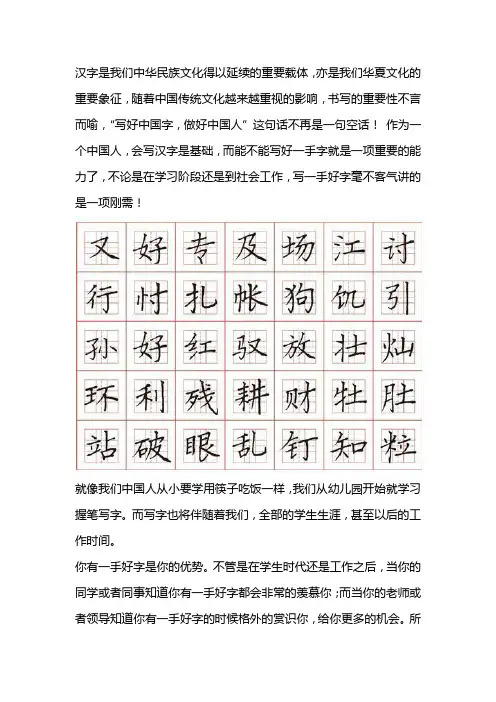 汉字是我们中华民族文化得以延续的重要载体，亦是我们华夏文化的
重要象征，随着中国传统文化越来越重视的影响，书写的重要性不言
而喻，“写好中国字，做好中国人”这句话不再是一句空话！ 作为一
个中国人，会写汉字是基础，而能不能写好一手字就是一项重要的能
力了，不论是在学习阶段还是到社会工作，写一手好字毫不客气讲的
是一项刚需！
又好专及场江讨
行忖扎帐狗饥引
孙好红驭放壮灿
环利残耕财牡肚
站破眼乱钉知粒
就像我们中国人从小要学用筷子吃饭一样，我们从幼儿园开始就学习
握笔写字。而写字也将伴随着我们，全部的学生生涯，甚至以后的工
作时间。
你有一手好字是你的优势。不管是在学生时代还是工作之后，当你的
同学或者同事知道你有一手好字都会非常的羡慕你；而当你的老师或
者领导知道你有一手好字的时候格外的赏识你，给你更多的机会。所